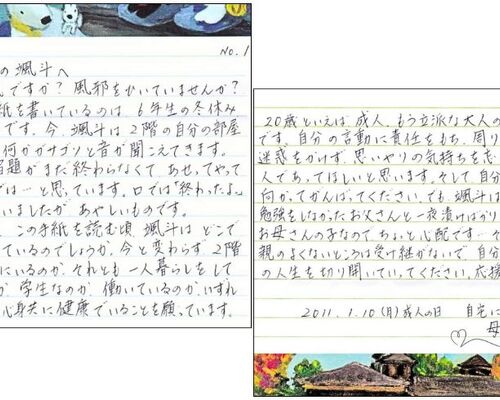 No.1
の颯斗へ
ですか？風邪をひいていませんか？
紙を書いているのは、6年生の冬休み
です。今、颯斗は2階の自分の部屋
何かガサゴソと音が聞こえてきます。
題がまだ終わらなくて、あせってやって
では…と思っています。口では「終わったよ。
いましたがあやしいものです。
、この手紙を読む頃、颯斗はどこで
ているのでしょうか。今と変わらず、2階
にいるのか、それとも一人暮らしをして
か、学生なのか、働いているのか、いずれ
心身共に健康でいることを願っています。
20歳といえば、成人。もう立派な大人の
です。自分の言動に責任をもち、周り
迷惑をかけず、思いやりの気持ちを
人であってほしいと思います。そして自分
向かってがんばってください。でも、颯斗は
勉強をしなかったお父さんと一夜漬けばかり
お母さんの子なので、ちょっと心配です…
親のよくないところは受け継がないで、自分
の人生を切り開いていってください。応援
2011.1.10(月)成人の日 自宅に
母